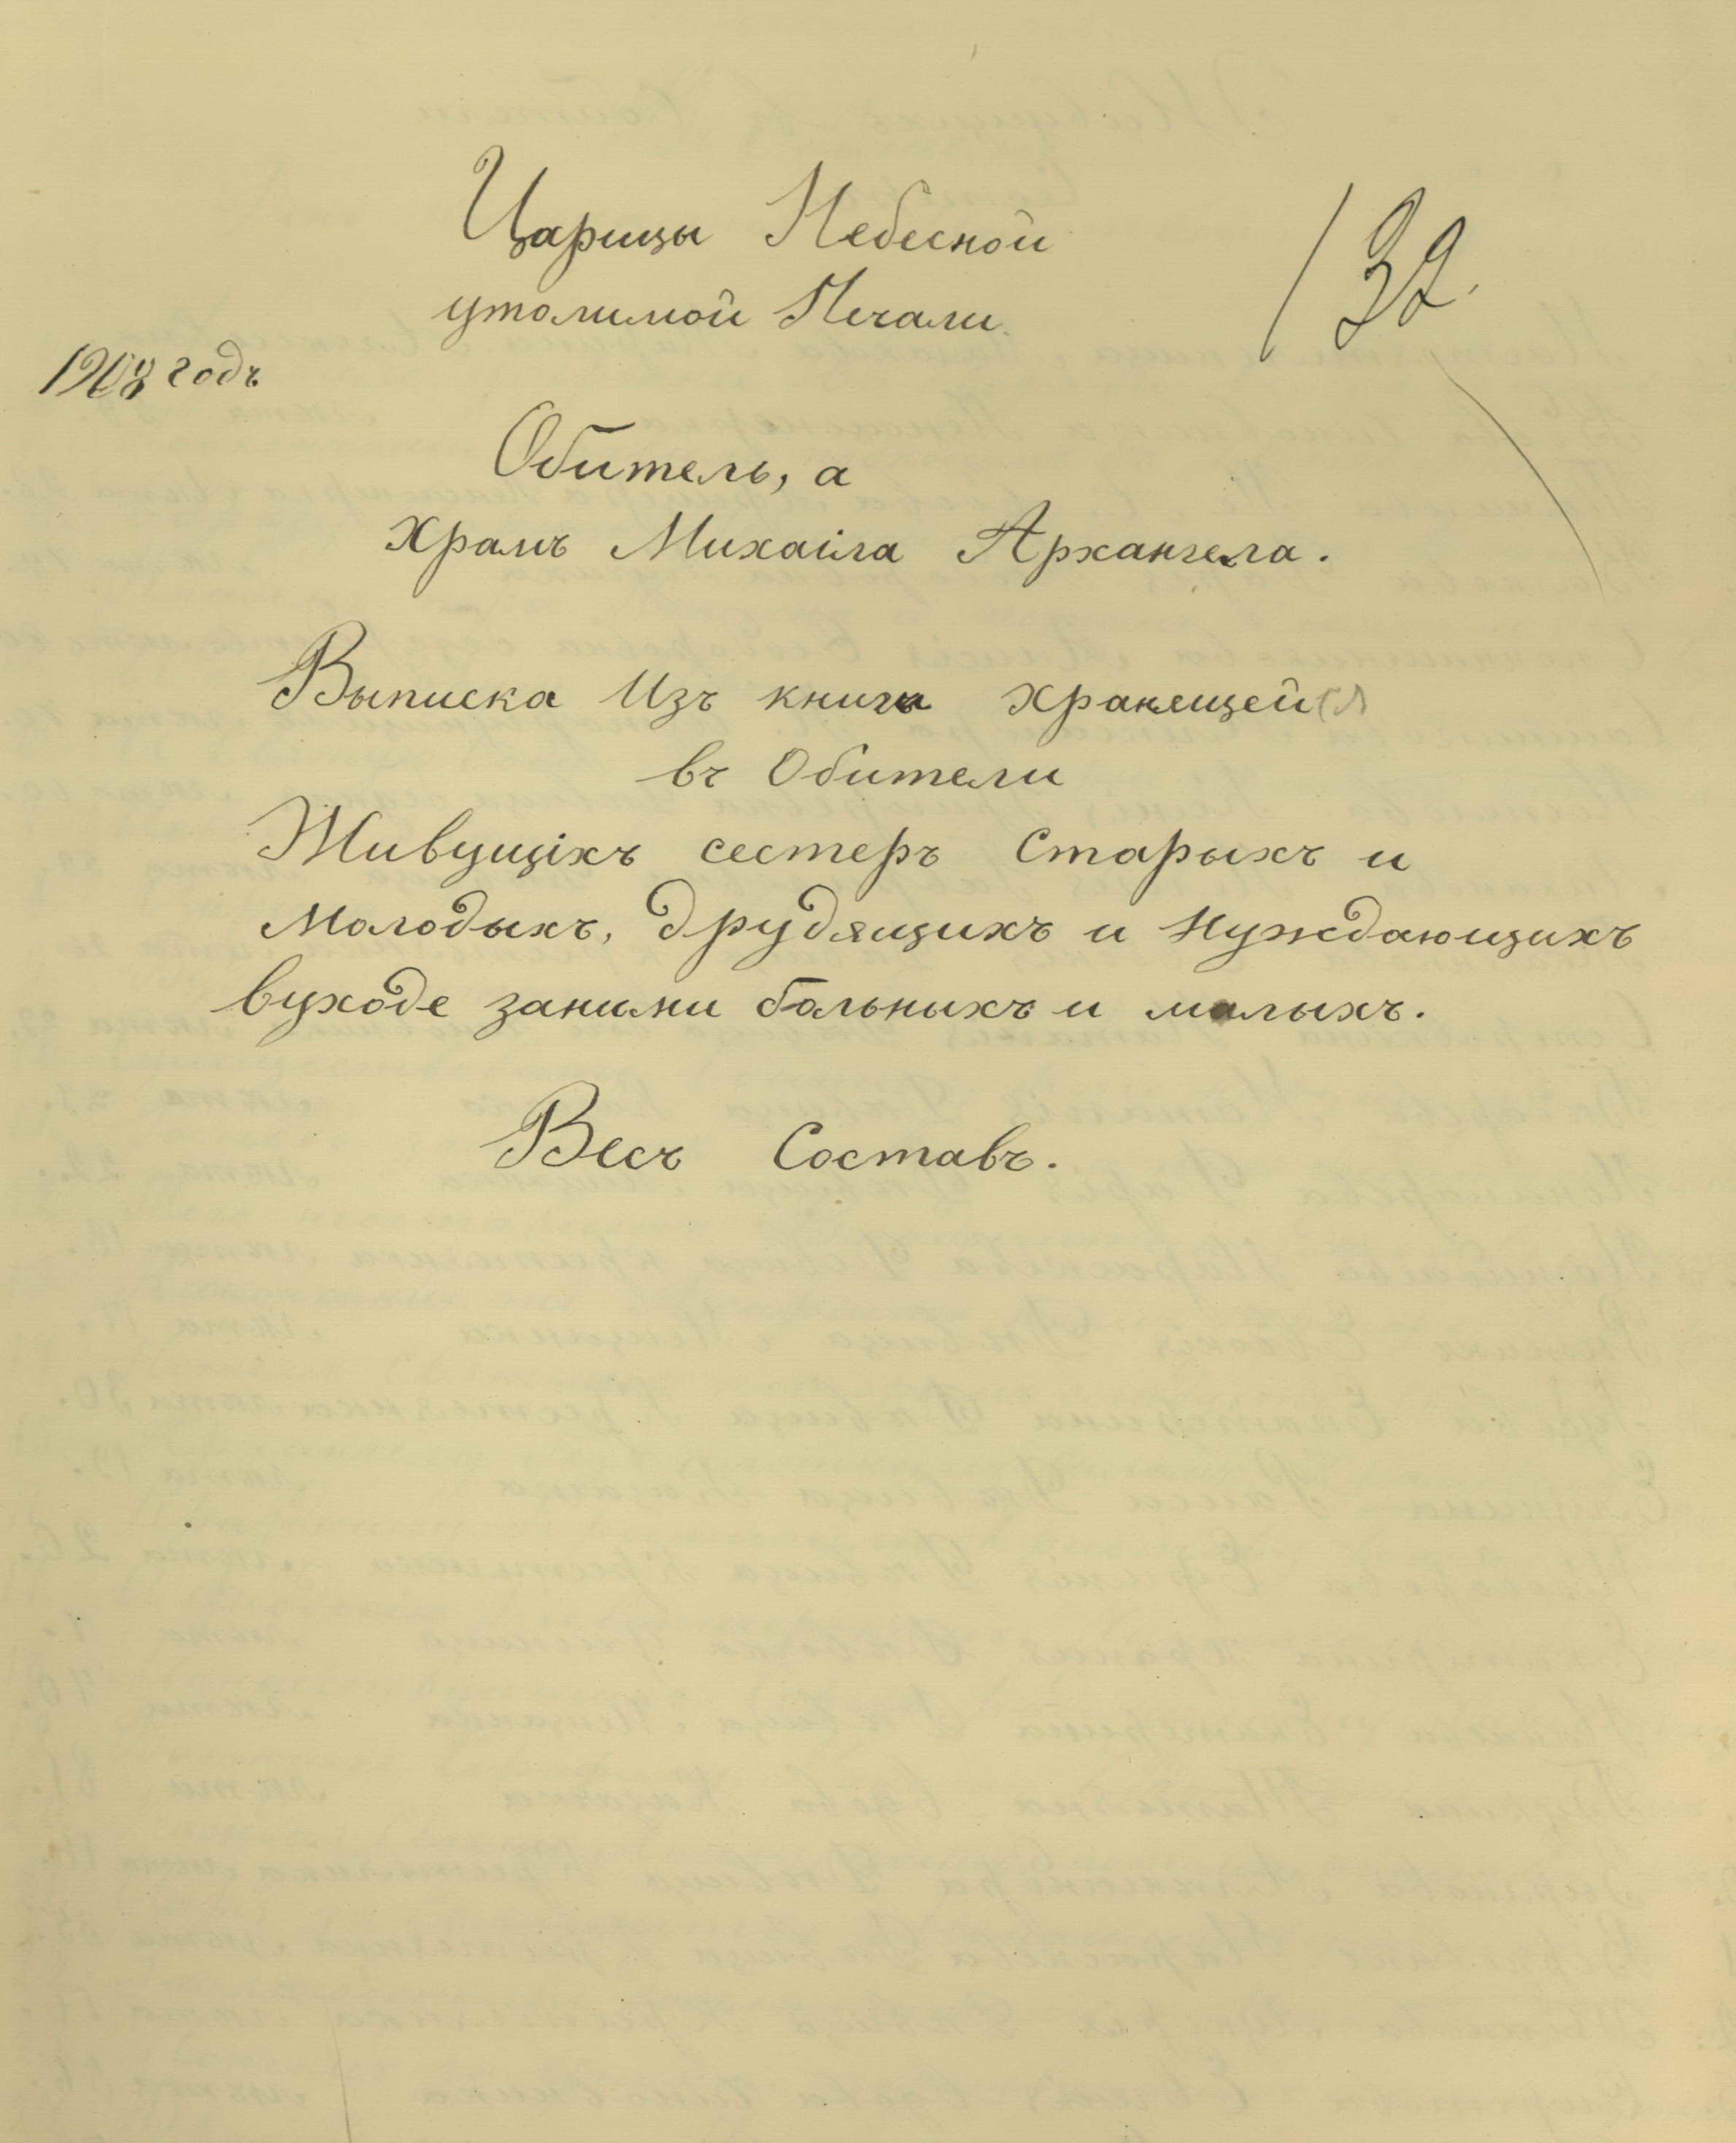 Царицы Небесной
утолимой Печали.
132.
1908 годъ
Обитель, а
Храмъ Михаила Архангела.
Выписка Изъ книги хранящейся
въ Обители
Живущихъ сестеръ Старыхъ и
Молодыхъ, друдящихъ и Нуждающихъ
вуходе заними больныхъ и малыхъ.
Весъ Составъ.